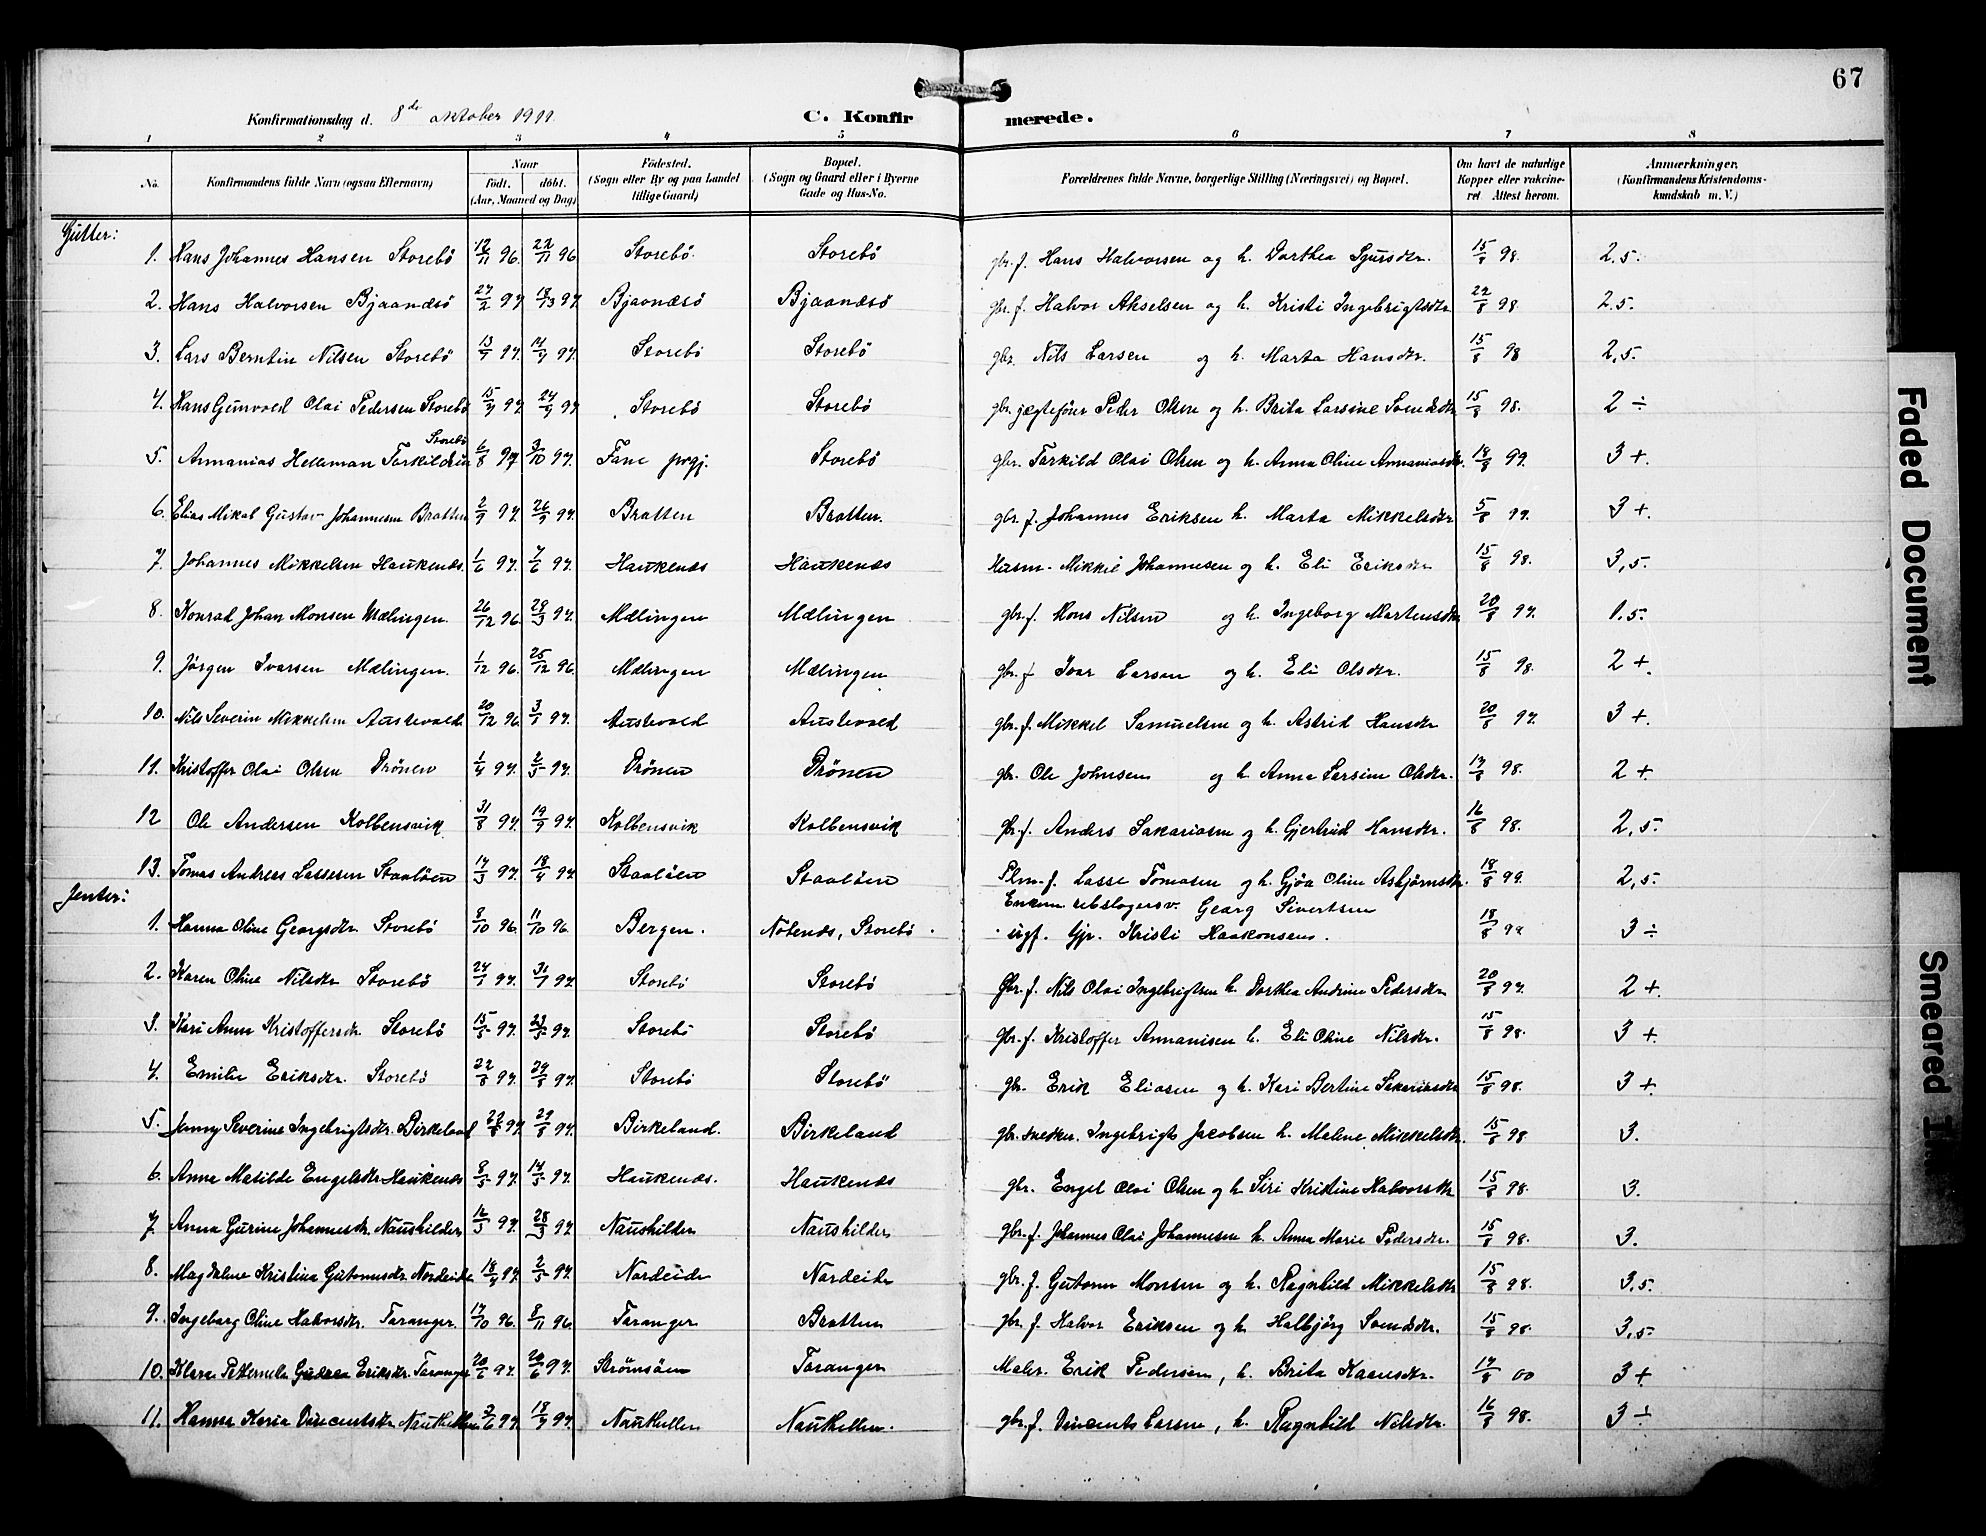 67
Konfirmationsdag d. 8de oktober 1911 C. Konfirmerede.
1 2 3 4 5 6 7 8
No. Konfirmandens fulde Navn (ogsaa Efternavn) Naar födt. döbt. (Aar, Maaned og Dag) Födested. (Sogn eller By og paa Landet tillige Gaard) Bopæl. (Sogn og Gaard eller i Byerne Gade og Hus-No. Forældrenes fulde Navne, borgerlige Stilling (Næringsvei) og Bopæl. Om havt de naturlige Kopper eller vakcineret Attest herom. Anmærkninger. (Konfirmandens Kristendomskundskab m. V.)
Gutter:
1. Hans Johannes Hansen Storebö 12/11 96. 22/11 96 Storebö. Storebö gbr. f. Hans Halvorsen og h. Dorthea Sjursdtr. 15/8 98. 2.5.
2. Hans Halvorsen Bjaanæsö 27/2 97 18/3 97 Bjaanæsö Bjaanæsö gbr. f. Halvor Akselsen og h. Kristi Ingebrigtsdtr 22/8 98 2.5.
3. Lars Berntin Nilsen Storebö 13/7 97. 14/9 97. Storebö Storebö gbr. Nils Larsen og h. Marta Hansdtr. 15/8 98 2,5.
4. Hans Gunvald Olai Pedersen Storebö 15/7 97 24/9 97 Storebö Storebö gbr. jægteförer Peder Olsen og h. Brita Larsine Svendsdtr 15/8 98. 2 ÷
5. Annanias Helleman Torkildsen Storebö 6/8 97 3/10 97. Fane prgj. Storebö gbr. Torkild Olai Olsen og h. Anna Oline Annaniasdtr. 18/8 99. 3 +.
6. Elias Mikal Gustav Johannesen Bratten 2/9 97. 26/9 97. Bratten Bratten. gbr. f. Johannes Eriksen h. Marta Mikkelsdtr 5/8 99. 3 +.
7. Johannes Mikkelsen Haukenæs. 1/6 97. 7/6 97. Haukenæs Haukenæs Husm. Mikkel Johannesen og h. Eli Eriksdtr 15/8 98. 3,5.
8. Konrad Johan Monsen Mælingen. 26/12 96. 28/3 97. Mælingen Mælingen gbr. f. Mons Nilsen og h. Ingeborg Martensdtr 20/8 97. 1.5.
9. Jørgen Ivarsen Mælingen. 1/12 96. 25/12 96. Mælingen Mælingen gbr. f Ivar Larsen og h. Eli Olsdtr. 15/8 98. 2 +
10. Nils Severin Mikkelsen Austevold 20/12 96. 3/1 97. Austevold Austevold gbr. f. Mikkel Samuelsen og h. Astrid Hansdtr 20/8 97. 3 +.
11. Kristoffer Olai Olsen Drönen 1/4 97. 2/5 97. Drönen Drönen gbr. Ole Johnsen og h. Anna Larsine Olsdtr. 17/8 98. 2 +
12 Ole Andersen Kolbensvik 31/8 97. 19/9 97. Kolbensvik Kolbensvik gbr. f. Anders Sakariasen og h. Gjertrud Hansdtr. 16/8 98. 2,5.
13. Tomas Andreas Lassesen Staalöen 14/3 97. 18/4 97. Staalöen Staalöen Plm. f. Lasse Tomasen og h. Gjöa Oline Asbjörnsdtr. 18/8 99. 2,5.
Jenter:
1. Hanna Oline Georgsdtr. Storebö 8/10 96. 11/10 96. Bergen. Nötenæs, Storebö. Enkem. rebslagersv. Georg Sivertsen
ugf. Gjr. Kristi Haakonsens. 18/8 99 3 ÷
2. Karen Oline Nilsdtr Storebö 24/1 97. 31/1 97 Storebö Storebö Gbr. f. Nils Olai Ingebrigtsen h. Dorthea Andrine Pedersdtr 20/8 97. 2 +.
3. Kari Anna Kristoffersdtr. Storebö 15/5 97. 23/5 97. Storebö Storebö gbr. f. Kristoffer Annanisen h. Eli Oline Nilsdtr. 15/8 98. 3 +.
4. Emilie Eriksdtr. Storebö 22/8 97. 29/8 97. Storebö Storebö gbr. Erik Eliasen og h. Kari Bertine Sakariasdtr 15/8 98. 3 +.
5. Jenny Severine Ingebrigtsdtr. Birkeland 22/8 97. 29/8 97. Birkeland. Birkeland gbr. snedker. Ingebrigt Jacobsen h. Malene Mikkelsdtr. 15/8 98 3.
6. Anna Matilde Engelsdtr Haukenæs 8/5 97. 14/5 97. Haukenæs. Haukenæs gbr. Engel Olai Olsen og h. Siri Kristine Halvorsdtr 15/8 98. 3.
7. Anna Gurine Johannesdtr. Naushilder 16/3 97. 28/3 97 Naushilder Naushilder gbr. f. Johannes Olai Johannesen h. Anna Marie Pedersdtr. 15/8 98. 3.
8. Magdalene Kristina Gutormsdtr. Nordeide 18/4 97. 2/5 97. Nordeide Nordeide gbr. f. Gutorm Monsen og h. Ragnhild Mikkelsdtr 15/8 98. 3.5.
9. Ingeborg Oline Halvorsdtr. Taranger. 17/10 96. 8/11 96. Taranger Bratten gbr. f. Halvor Eriksen og h. Halbjörg Svendsdtr. 15/8 98. 3,5.
10. Klara Petternele Gudrea Eriksdtr. Taranger 20/6 97. 20/6 97. Strömsöen Taranger Maler. Erik Pedersen, h. Brita Knutsdtr. 17/8 00 3 +.
11. Hanna Karia Vincentsdtr Naukhellen 3/6 97. 18/7 97. Naukhellen Naukhellen. gbr. f. Vincents Larsen, h. Ragnhild Nilsdtr. 16/8 98. 3 ÷
Faded Document
Smeared Ink